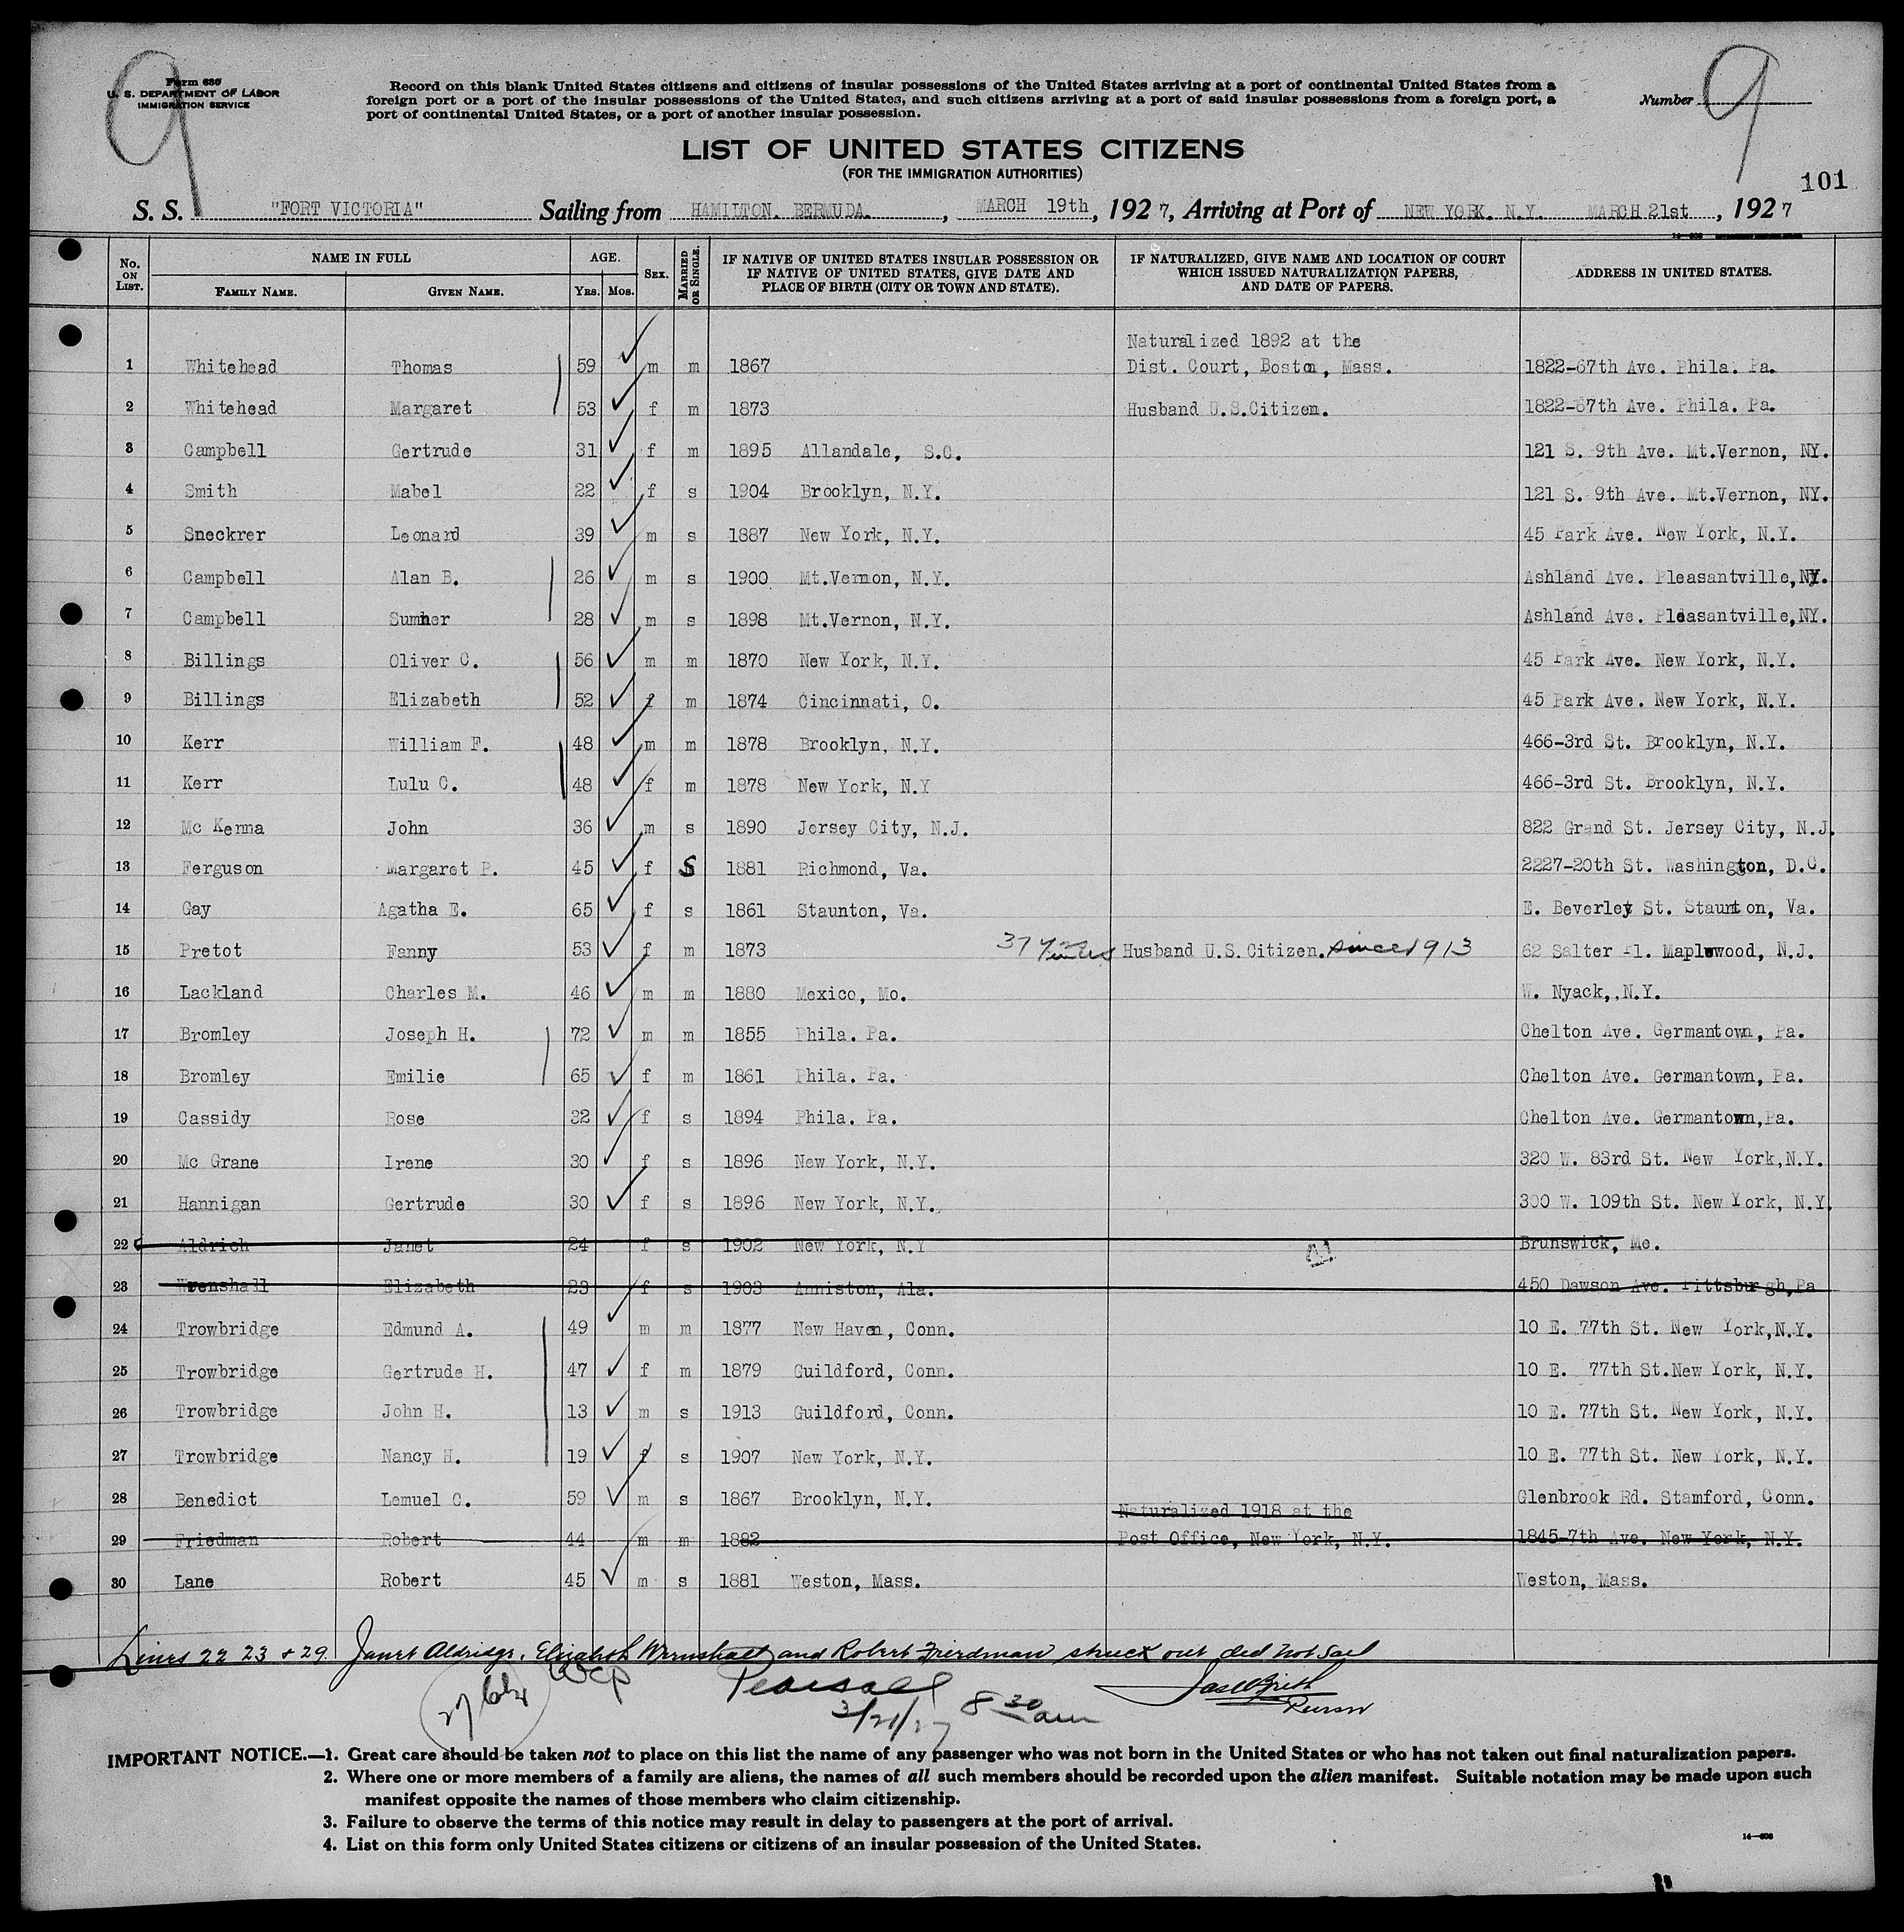 9
Form 630
U. S. DEPARTMENT OF LABOR
IMMIGRATION SERVICE
Record on this blank United States citizens and citizens of insular possessions of the United States arriving at a port of continental United States from a
foreign port or a port of the insular possessions of the United States, and such citizens arriving at a port of said insular possessions from a foreign port, a
port of continental United States, or a port of another insular possession.
Number 9
LIST OF UNITED STATES CITIZENS
(FOR THE IMMIGRATION AUTHORITIES)
101
S. S. "FORT VICTORIA" Sailing from HAMILTON. BERMUDA. , MARCH 19th, 1927, Arriving at Port of NEW YORK. N.Y. MARCH 21st, 1927
No. ON LIST. NAME IN FULL AGE. SEX. MARRIED OR SINGLE. IF NATIVE OF UNITED STATES INSULAR POSSESSION OR IF NATIVE OF UNITED STATES, GIVE DATE AND PLACE OF BIRTH (CITY OR TOWN AND STATE). IF NATURALIZED, GIVE NAME AND LOCATION OF COURT WHICH ISSUED NATURALIZATION PAPERS, AND DATE OF PAPERS. ADDRESS IN UNITED STATES.
FAMILY NAME. GIVEN NAME. YRS. MOS.
Naturalized 1892 at the
1 Whitehead Thomas 59 m m 1867 Dist. Court, Boston, Mass. 1822-67th Ave. Phila. Pa.
2 Whitehead Margaret 53 f m 1873 Husband U.S.Citizen. 1822-67th Ave. Phila. Pa.
3 Campbell Gertrude 31 f m 1895 Allandale, S.C. 121 S. 9th Ave. Mt.Vernon, NY.
4 Smith Mabel 22 f s 1904 Brooklyn, N.Y. 121 S. 9th Ave. Mt.Vernon, NY.
5 Sneckrer Leonard 39 m s 1887 New York, N.Y. 45 Park Ave. New York, N.Y.
6 Campbell Alan B. 26 m s 1900 Mt.Vernon, N.Y. Ashland Ave. Pleasantville,NY.
7 Campbell Sumner 28 m s 1898 Mt.Vernon, N.Y. Ashland Ave. Pleasantville,NY.
8 Billings Oliver C. 56 m m 1870 New York, N.Y. 45 Park Ave. New York, N.Y.
9 Billings Elizabeth 52 f m 1874 Cincinnati, O. 45 Park Ave. New York, N.Y.
10 Kerr William F. 48 m m 1878 Brooklyn, N.Y. 466-3rd St. Brooklyn, N.Y.
11 Kerr Lulu C. 48 f m 1878 New York, N.Y 466-3rd St. Brooklyn, N.Y.
12 Mc Kenna John 36 m s 1890 Jersey City, N.J. 822 Grand St. Jersey City, N.J.
13 Ferguson Margaret P. 45 f S 1881 Richmond, Va. 2227-20th St. Washington, D.C.
14 Gay Agatha E. 65 f s 1861 Staunton, Va. E. Beverley St. Staunton, Va.
15 Pretot Fanny 53 f m 1873 37 Husband U.S.Citizen. since 1913 62 Salter Pl. Maplewood, N.J.
16 Lackland Charles M. 46 m m 1880 Mexico, Mo. W. Nyack,.N.Y.
17 Bromley Joseph H. 72 m m 1855 Phila. Pa. Chelton Ave. Germantown, Pa.
18 Bromley Emilie 65 f m 1861 Phila. Pa. Chelton Ave. Germantown, Pa.
19 Cassidy Rose 32 f s 1894 Phila. Pa. Chelton Ave. Germantown,Pa.
20 Mc Grane Irene 30 f s 1896 New York, N.Y. 320 W. 83rd St. New York,N.Y.
21 Hannigan Gertrude 30 f s 1896 New York, N.Y. 300 W. 109th St. New York, N.Y.
22 Aldrich Janet 24 f s 1902 New York, N.Y Brunswick, Me.
23 Wrenshall Elizabeth 23 f s 1903 Anniston, Ala. 450 Dawson Ave. Pittsburgh,Pa
24 Trowbridge Edmund A. 49 m m 1877 New Haven, Conn. 10 E. 77th St. New York,N.Y.
25 Trowbridge Gertrude H. 47 f m 1879 Guildford, Conn. 10 E. 77th St.New York, N.Y.
26 Trowbridge John H. 13 m s 1913 Guildford, Conn. 10 E. 77th St. New York, N.Y.
27 Trowbridge Nancy H. 19 f s 1907 New York, N.Y. 10 E. 77th St. New York, N.Y.
28 Benedict Lemuel C. 59 m s 1867 Brooklyn, N.Y. Glenbrook Rd. Stamford, Conn.
Naturalized 1918 at the
29 Friedman Robert 44 m m 1882 Post Office, New York, N.Y. 1845-7th Ave. New York, N.Y.
30 Lane Robert 45 m s 1881 Weston, Mass. Weston, Mass.
Lines 22 23 + 29 Janet Aldridge, Elizabeth Wrenshall and Robert Friedman struck out did not sail
Pearsall
3/21/27 8 30 am
Purser
IMPORTANT NOTICE.—1. Great care should be taken not to place on this list the name of any passenger who was not born in the United States or who has not taken out final naturalization papers.
2. Where one or more members of a family are aliens, the names of all such members should be recorded upon the alien manifest. Suitable notation may be made upon such
manifest opposite the names of those members who claim citizenship.
3. Failure to observe the terms of this notice may result in delay to passengers at the port of arrival.
4. List on this form only United States citizens or citizens of an insular possession of the United States.